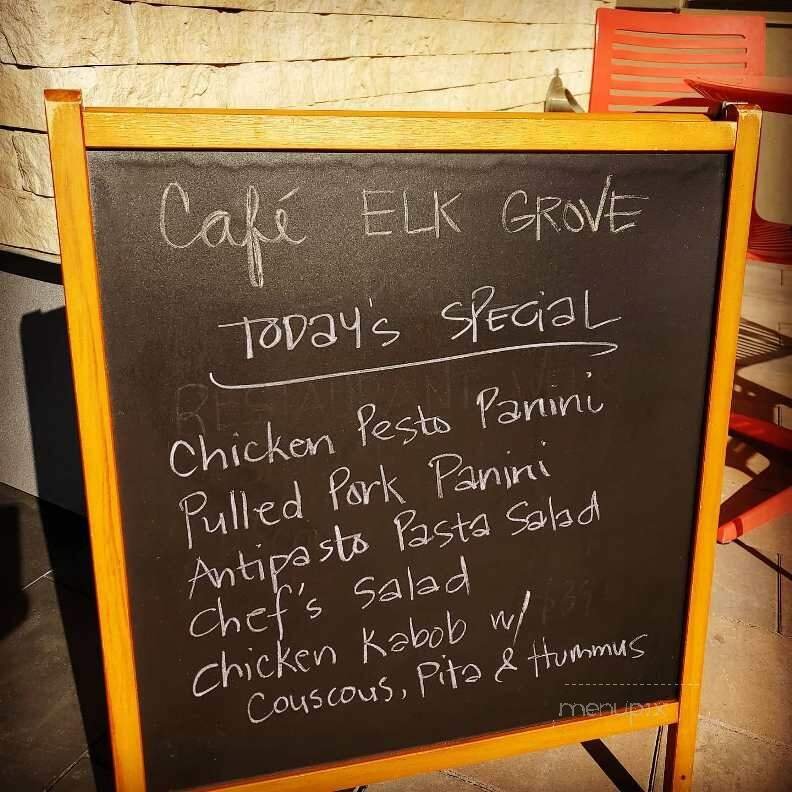 Café ELK GROVE
TODAY'S SPECIAL
Chicken Pesto Panini
Pulled Pork Panini
Antipasto Pasta Salad
Chef's Salad
Chicken Kabob w/
Couscous, Pita & Hummus
menupix